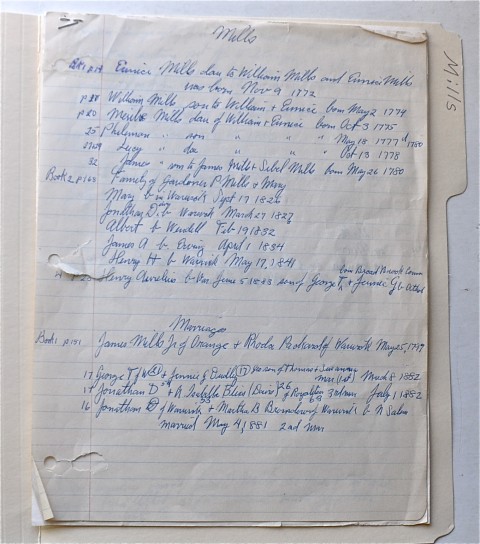 Mills
Mills
Bk1 p19 Eunice Mills dau to William Mills and Eunice Mills
was born Nov 9 1772
William Mills son to William & Eunice born May 2 1774
p20 Mills dau of William & Eunice born Oct 3 1775
25 Philemon " son " " " May 18 1777
Lucy " dau " " " Oct 13 1778
32 James " son to James Mills & Sibel Mills born May 26 1780
Book 2 p163 Family of Gardner P Mills & Mary
Mary b in Warwick Sept 17 1826
Jonathan D. b Warwick March 27
Albert b Wendell Feb 19 1832
James A b Erving April 1 1834
Henry H b Warwick May 17, 1841
born Broad Brook Conn
Henry Aurelius b War June 5 1883 son of George T. & Jennie G b Athol
Marriages
Book 1 p151 James Mills Jr of Orange & Rhoda of Warwick May 25,
17 George T & Jennie G 17 son of Thomas & Susannah
mar (1st) March 8 1882
17 Jonathan D 54 & 26 of Royalston 3rd mar July 1 1882
16 Jonathan D of Warwick 53 & Martha B of Warwick b N Salem
married May 4, 1881 2nd mar